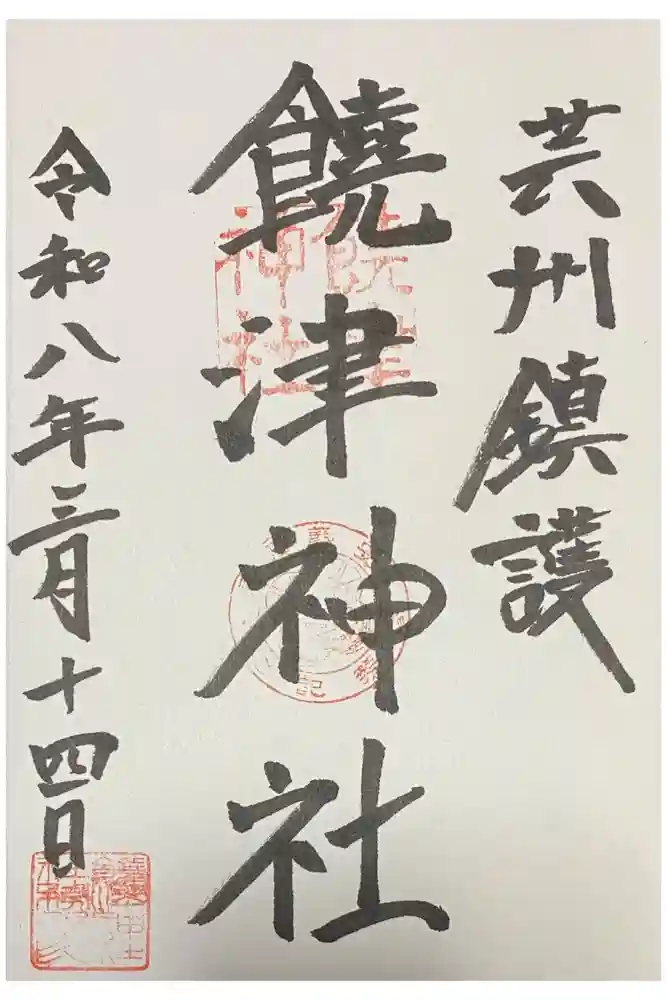 芸州鎮護
饒津神社
令和八年三月十四日
饒津神社